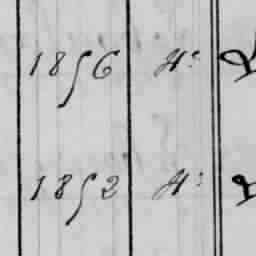 1856 H:
1852 H: